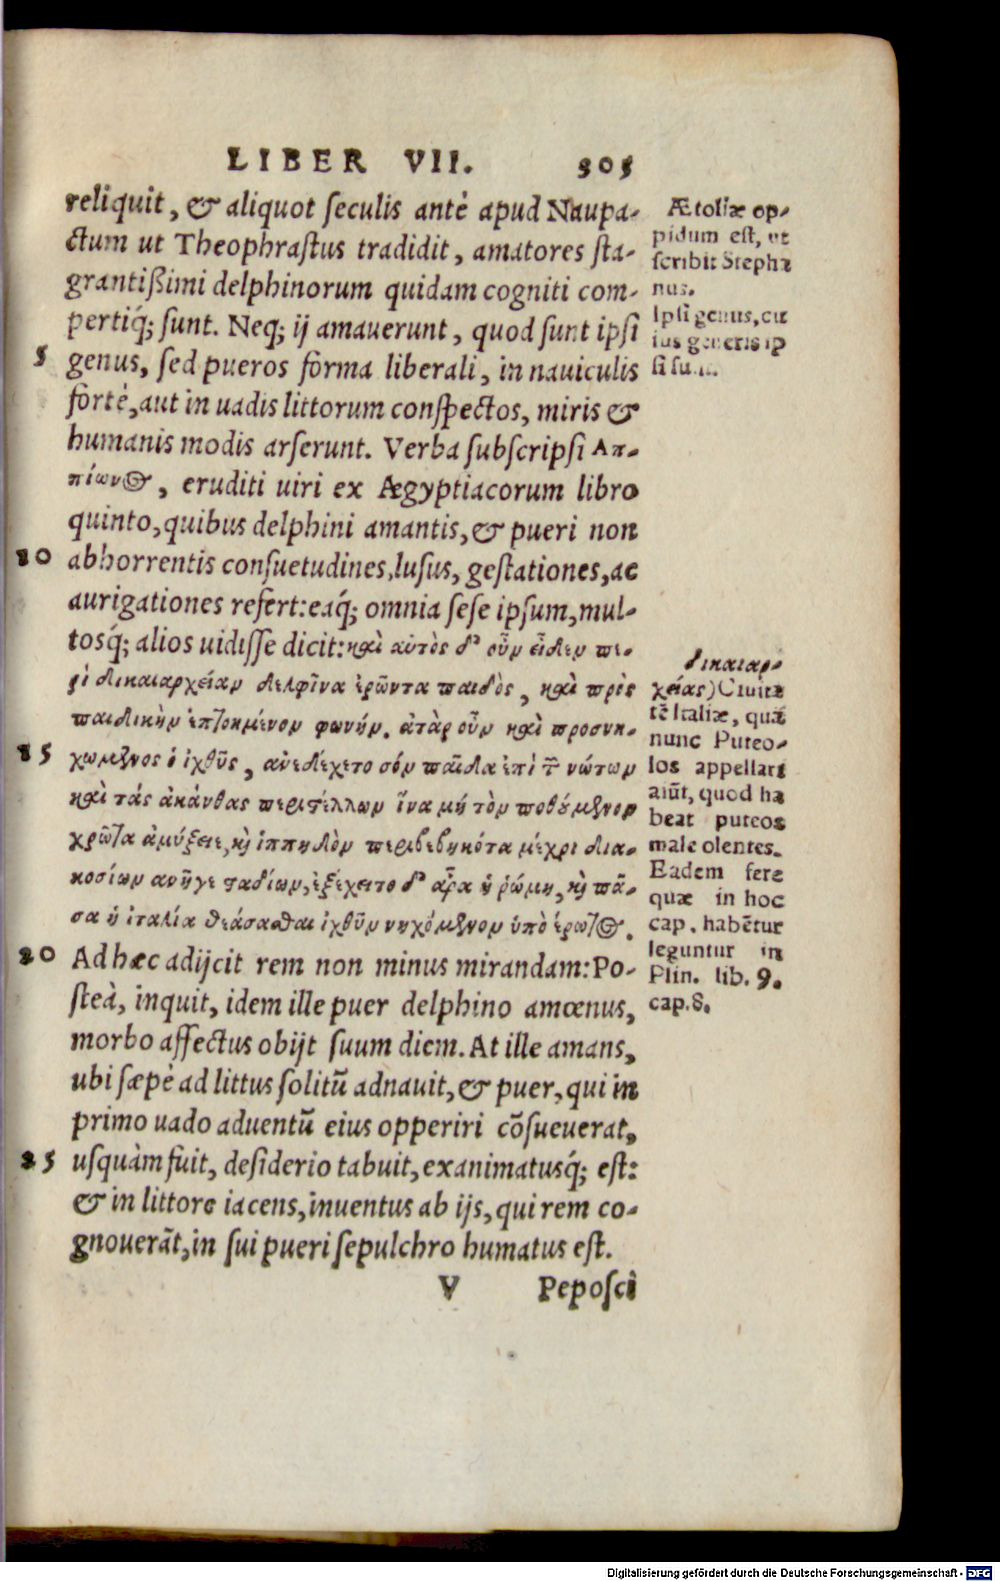 LIBER VII. 305
reliquit, & aliquot seculis antè apud Naupa-
ctum ut Theophrastus tradidit, amatores sla-
grantißimi delphinorum quidam cogniti com-
pertiq́; sunt. Neq; ij amauerunt, quod sunt ipsi
5 genus, sed pueros forma liberali, in nauiculis
fortè, aut in uadis littorum conspectos, miris &
humanis modis arserunt. Verba subscripsi Απ-
πίωνος, eruditi uiri ex Ægyptiacorum libro
quinto, quibus delphini amantis, & pueri non
10 abhorrentis consuetudines, lusus, gestationes, ac
aurigationes refert: eaq́; omnia sese ipsum, mul-
tosq́; alios uidisse dicit: καὶ αὐτὸς δ' οὖν εἶδεν πε-
ρὶ δικαιαρχείαν δελφῖνα ἐρῶντα παιδὸς, καὶ πρὸς
παιδικὴν ἐπτοημένον φωνήν. ἀτὰρ οὖν καὶ προσνη-
15 χωμενος ὁ ἰχθῦς, ἀνεδέχετο σόν παῖδα ἐπὶ τ νώτων
καὶ τάς ἀκάνθας περιστέλλων ἵνα μή τὸν ποθούμενον
χρῶτα ἀμύξειε, καὶ ἱππηδὸν περιβεβηκότα μέχρι δια-
κοσίων ανῆγε σταδίων, ἐξέχειτο δ' αῤα ἡ ῥώμη, καὶ πᾶ-
σα ἡ ἰταλία θεάσασθαι ἰχθῦν νηχόμενον ὑπὸ ἔρωτος.
20 Ad hæc adijcit rem non minus mirandam: Po-
steà, inquit, idem ille puer delphino amœnus,
morbo affectus obijt suum diem. At ille amans,
ubi sæpè ad littus solitũ adnauit, & puer, qui in
primo uado aduentũ eius opperiri cõsueuerat,
25 usquàm fuit, desiderio tabuit, exanimatusq́; est:
& in littore iacens, inuentus ab ijs, qui rem co-
gnouerãt, in sui pueri sepulchro humatus est.
V Peposci
Ætoliæ op-
pidum est, ut
scribit Stepha
nus.
Ipsi genus, cu
ius generis ip
si sunt.
δικαιαρ-
χείας) Ciuita
tẽ Italiæ, quã
nunc Puteo-
los appellari
aiũt, quod ha
beat puteos
male olentes.
Eadem fere
quæ in hoc
cap. habẽtur
leguntur in
Plin. lib. 9.
cap. 8.
Digitalisierung gefördert durch die Deutsche Forschungsgemeinschaft - DFG